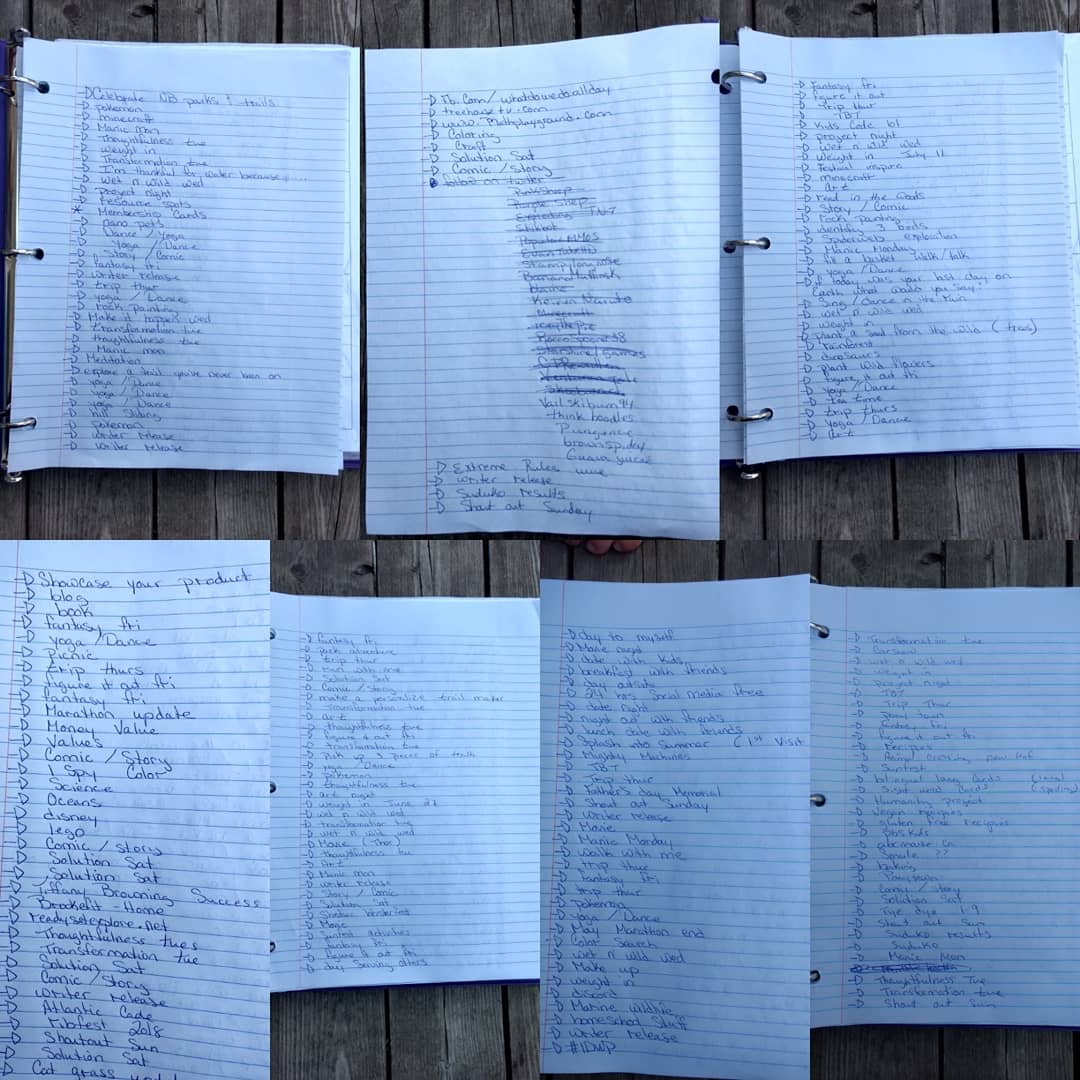 Celebrate NB parks & trails
pokemon
minecraft
Manic mon
Thoughtfulness tue
weight in
Transformation tue
I'm thankful for water because ....
wet n wild wed
project night
resource spots
Membership Cards
nano pets
Dance / Yoga
Yoga / Dance
Story / Comic
fantasy fri
writer release
trip thur
yoga / Dance
rock painting
Make it happen wed
transformation tue
thoughtfulness tue
Manic mon
Meditation
explore a trail you've never been on
yoga / Dance
yoga / Dance
yoga / Dance
hill sliding
pokemon
writer release
writer release
fb.com/whatdowedoallday
treehousetv.com
www.mathplayground.com
Coloring
Craft
Solution Sat
Comic / Story
follow on twitter
PinkSheep
Purple Shep
Exploding TNT
PopularMMOS
Stampylonnose
Vailskibum94
think noodles
Pungence
brownspiday
Extreme Rules wwe
writer release
Suduko results
Shout out Sunday
fantasy fri
figure it out
Trip thur
TBT
Kids Code
project night
wet n wild wed
weight in July 11
Festival inspire
minecraft
art
read in the
Story / Comic
rock painting
identify 3 birds
Spiderwebs exploration
Manic Monday
walk/talk
yoga / Dance
if today was your last day on
Earth what would you say?
Sing / Dance n the rain
wet n wild wed
weight in
plant a seed from the wild (tree)
rainforest
dinosaurs
plant wild flowers
figure it out fri
Yoga / Dance
tea time
trip thurs
yoga / Dance
art
Showcase your product
blog
book
fantasy fri
yoga / Dance
Picnic
trip thurs
figure it out fri
fantasy fri
Marathon update
Money Value
Values
Comic / Story
I Spy Color
Science
Oceans
disney
lego
Comic / story
Solution Sat
Solution Sat
Tiffany Browning Success
Brackett - Home
readysetexplore.net
Thoughtfulness tues
Transformation tue
Solution Sat
Comic / Story
writer release
Atlantic Cade
Ribfest 2018
Shoutout Sun
Solution Sat
Cat grass
fantasy fri
park adventure
trip thur
run with me
Solution Sat
Comic / Story
make a personalize trail maker
Transformation tue
art
thoughtfulness tue
figure it out fri
transformation tue
pick up 3 pieces of trash
yoga / Dance
pokemon
thoughtfulness tue
art night
weight in June 27
wet n wild wed
transformation tue
wet n wild wed
Movie (Thor)
thoughtfulness tue
Art
Manic mon
writer release
Story / Comic
Solution Sat
Movie
Sunted activities
fantasy fri
figure it out fri
day Serving others
day to myself
Movie night
date with Kids
breakfast with friends
day outside
24 hrs Social media free
date night
night out with friends
lunch date with friends
Splash into Summer (1st Visit
Mighty Machines
TBT
Trip thur
Father's day Memorial
Shout out Sunday
writer release
Movie
Manic Monday
walk with me
trip thur
fantasy fri
trip thur
pokemon
Yoga / Dance
May Marathon end
Color Search
wet n wild wed
Make up
weight in
discord
Marine wildlife
homeschool Stuff
writer release
#IDWP
Transformation tue
wet n wild wed
weight in
project night
TBT
Trip Thur
fantasy fri
figure it out fri
Recipes
Humanity project
Vegan recipies
gluten free recipies
pbs Kids
Smule ??
baking
Comic / story
Solution Sat
Tye dye
Shout out Sun
Suduko results
Suduko
Manic Mon
Thoughtfulness Tue
Transformation tue
Shout out Sun